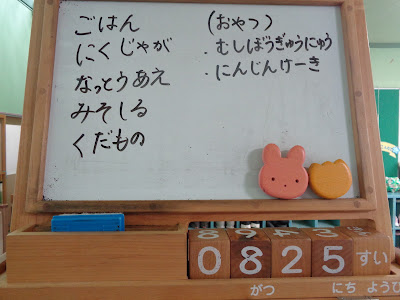 ごはん
にくじゃが
なっとうあえ
みそしる
くだもの
(おやつ)
・むしぼうぎゅうにゅう
・にんじんけーき
0825すい
がつ にち ようび